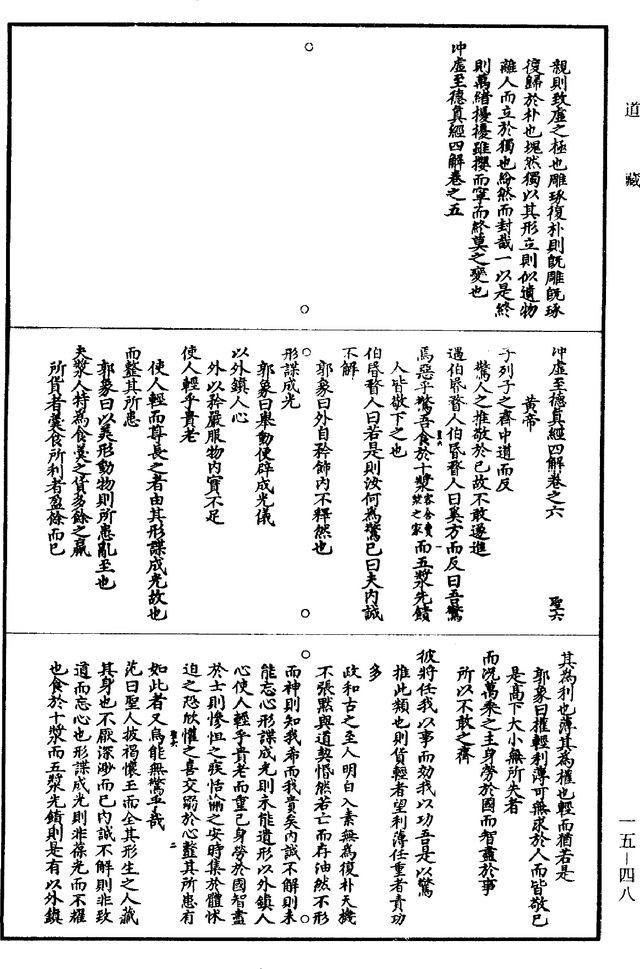 道藏
親則致虛之極也雕琢復朴則既雕既琢
復歸於朴也塊然獨以其形立則似遺物
離人而立於獨也紛然而封哉一以是終
則萬緒擾擾雖攖而寧而終莫之變也
冲虛至德眞經四解卷之五
冲虛至德眞經四解卷之六
聖六
黄帝
子列子之齊中道而反
驚人之推敬於已故不敢遂進
遇伯昏瞀人伯昏瞀人曰奚方而反曰吾驚
焉惡乎驚吾食於十漿
而五漿先饋
人皆敬下之也
伯昏瞀人曰若是則汝何爲驚已曰夫内誠
不解
郭象曰外自矜飾内不釋然也
形諜成光
郭象曰舉動便辟成光儀
以外鎮人心
外以矜嚴服物内實不足
使人輕乎貴老
使人輕而尊長之者由其形諜成光故也
而韲其所患
郭象曰以美形動物則所患亂至也
夫漿人特爲食羹之貨多餘之贏
所貨者羹食所利者盈餘而已
其爲利也薄其爲權也輕而猶若是
郭象曰權輕利薄可無求於人而皆敬已
是高下大小無所失者
而況萬乘之主身勞於國而智盡於事
所以不敢之齊
彼將任我以事而効我以功吾是以驚
推此類也則貨輕者望利薄任重者責功
多
政和古之至人明白入素無爲復朴天機
不張黙與道契惛然若亡而存油然不形
而神則知我希而我貴矣内誠不解則未
能忘心形諜成光則未能遺形以外鎮人
心使人輕乎貴老而重己身勞於國智盡
於士則慘怛之疾恬愉之安時集於體怵
迫之恐欣懽之喜交溺於心韲其所患有
如此者又烏能無驚乎哉
莊曰聖人披褐懷玉而全其形生之人藏
其身也不厭深渺而已内誠不解則非致
道而忘心也形諜成光則非葆光而不耀
也食於十漿而五漿先饋則是有以外鎮
一五—四八